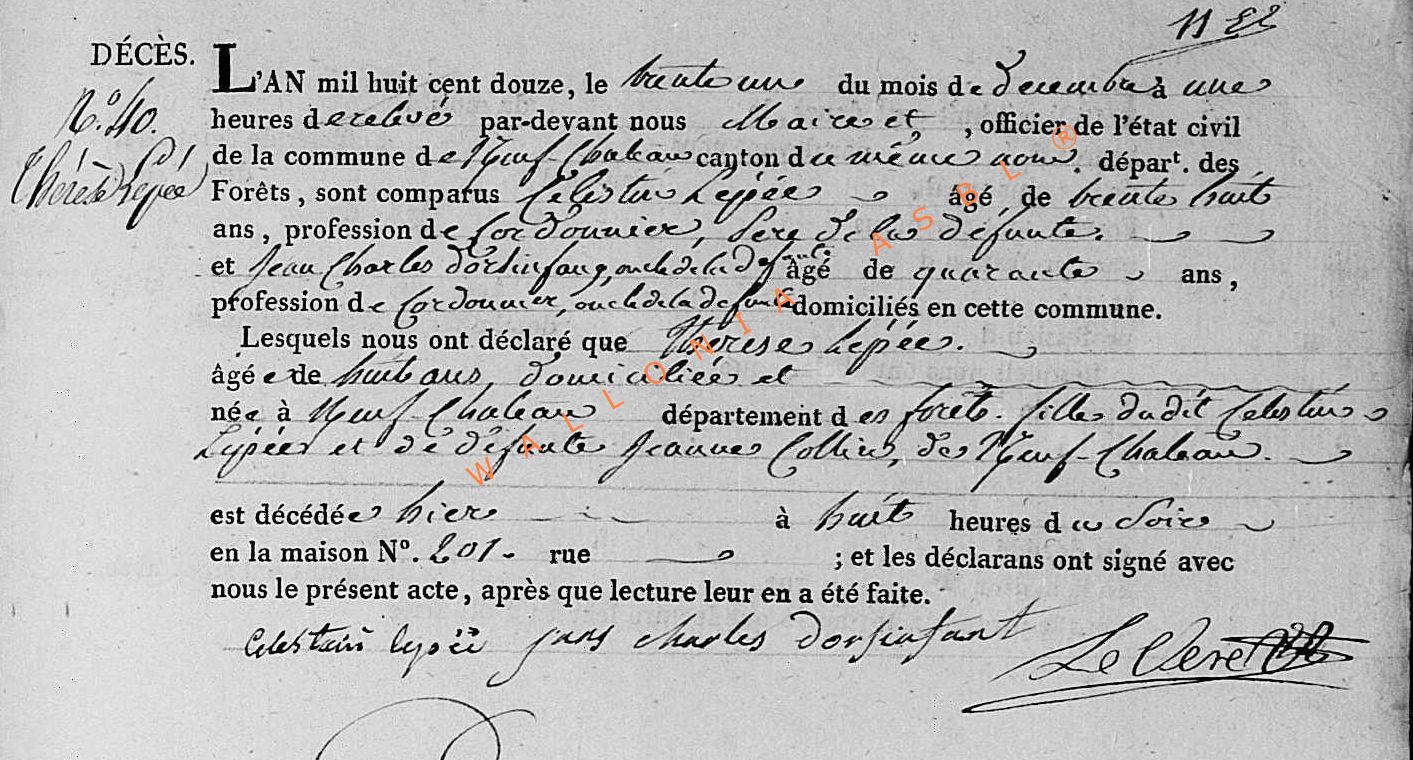 11 22
DÉCÈS. L'AN mil huit cent douze, le trente une du mois de decembre à une
N.º 40. heures de relevé par-devant nous Maire et, , officier de l'état civil
de la commune de Neuf-Chateau canton du même nom. départ. des
Thérèse Lepée Forêts, sont comparus Celestin Lepée âgé de trente huit
ans, profession de Cordonnier, Pere de la défunte.
et Jean Charles dorsinfang, oncle de la defunte âgé de quarante ans,
profession de Cordonnier, oncle de la defunte domiciliés en cette commune.
Lesquels nous ont déclaré que Thérese Lepée.
âgée de huit ans, domiciliée et
née à Neuf-Chateau département des forêts. fille dudit Celestin
Lepée et de défunte Jeanne Collin, de Neuf-Chateau.
est décédée hier à huit heures du Soir
en la maison Nº. 201. rue ; et les déclarans ont signé avec
nous le présent acte, après que lecture leur en a été faite.
Celestain lepéé jans charles Dorsinfant Le Clere
WALLONIA ASBL ®